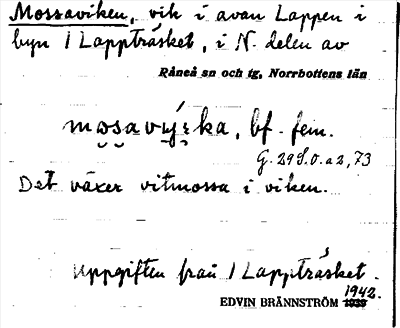 Mossaviken, vik i avan Lappen i
byn 1 Lappträsket, i N. delen av
Råneå sn och tg, Norrbottens län
mosavýıka, bf. fem.
G. 29 S.O. a 2, 73
Det växer vitmossa i viken.
Uppgiften från 1 Lappträsket.
1942.
EDVIN BRÄNNSTRÖM 1938